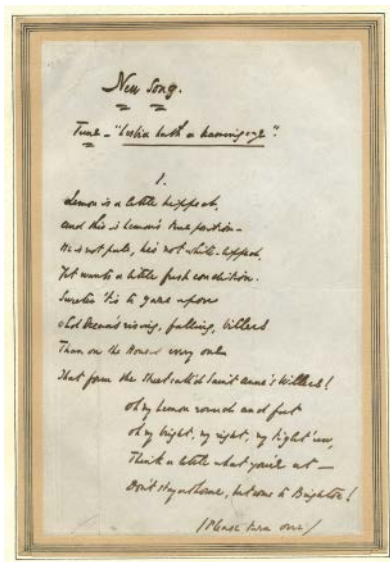 New Song.
Tune – "Lesbia hath a beaming eye".
1.
Lemon is a little hipped,
And this is Lemon's true position –
He is not pale, he's not white-lipped,
Yet wants a little fresh condition.
Sweeter 'tis to gaze upon
Old Ocean's rising, falling, billers
Than on the Houses every one
That form the Street called Saint Anne's Willers!
Oh my Lemon round and fat
Oh my bright, my right, my tight 'un,
Think a little what you're at –
Don't stay at home, but come to Brighton!
(Please turn over)